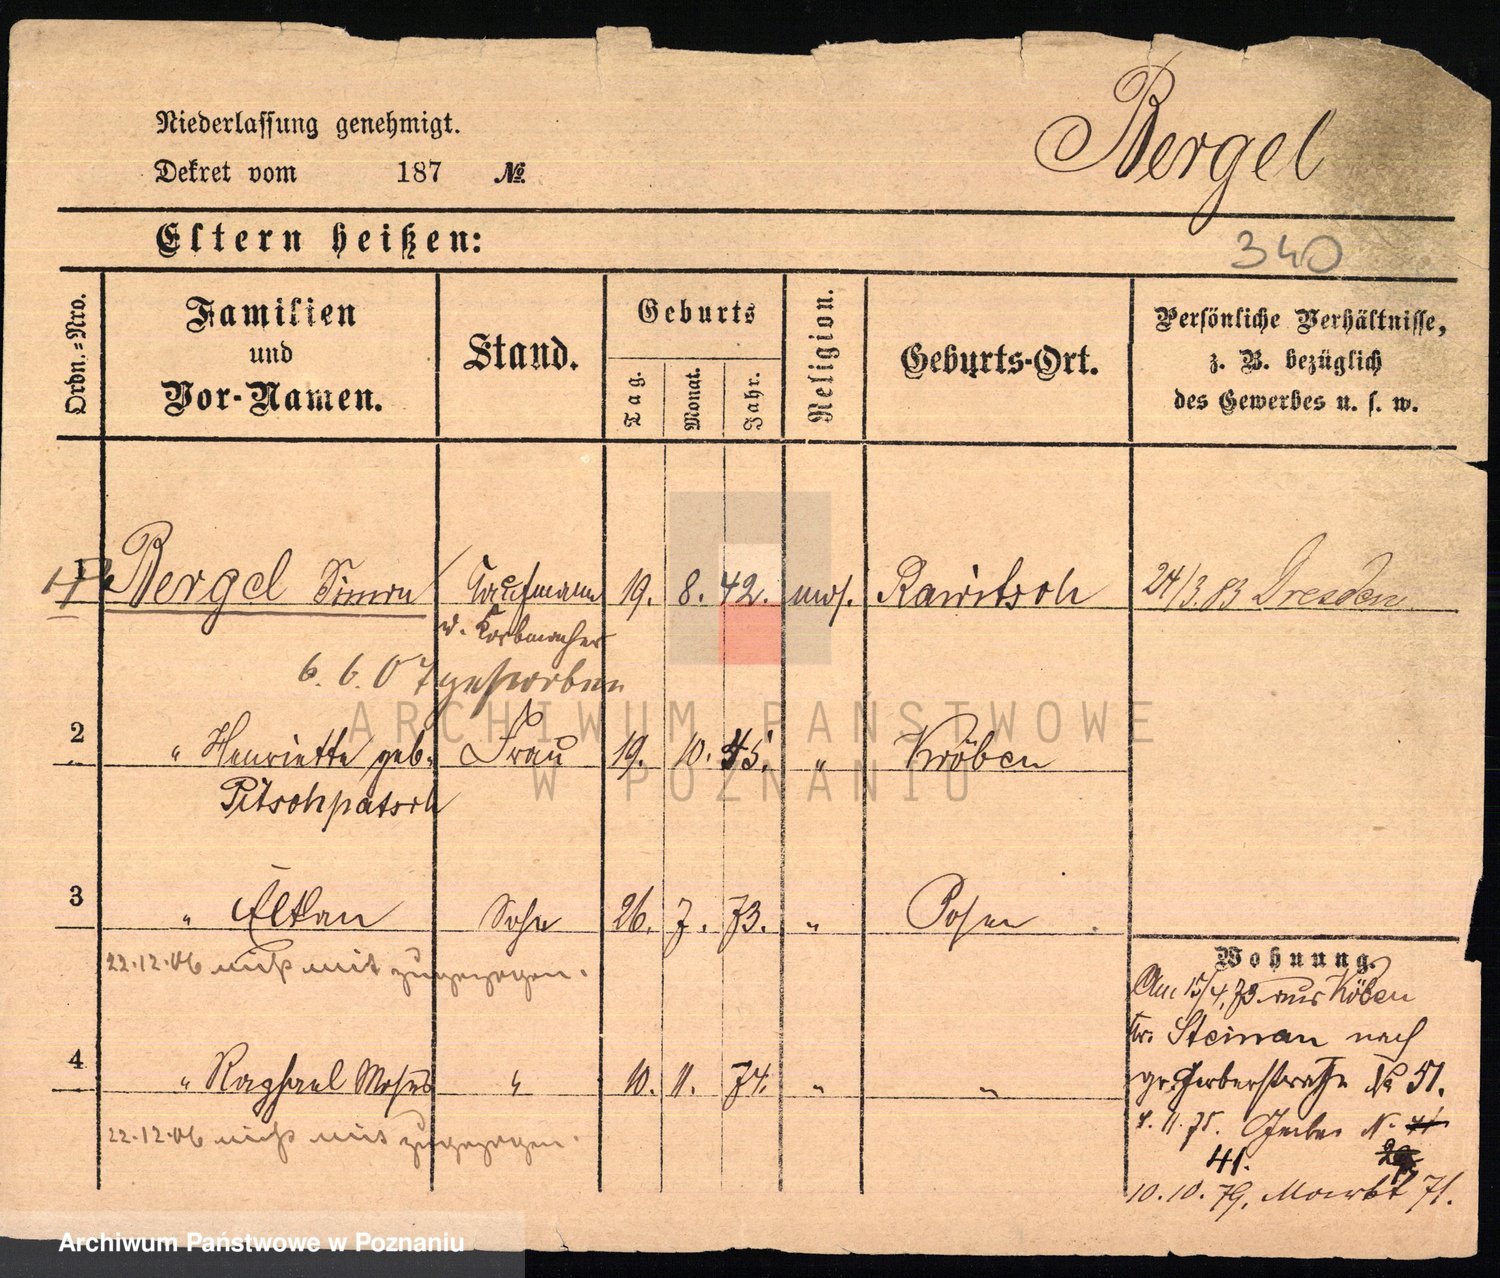 Niederlassung genehmigt.
Dekret vom 187 №
Bergel
Eltern heißen:
340
Ordn.-Nro.
Familien und Vor-Namen.
Stand.
Geburts
Tag.
Monat.
Jahr.
Religion.
Geburts-Ort.
Persönliche Verhältnisse, z. B. bezüglich des Gewerbes u. s. w.
1 Bergel Simon Kaufmann 19. 8. 42. mos. Rawitsch 24/3.83 Dresden
u. Korbmacher
6.6.07 gestorben
2 " Henriette geb. Frau 19. 10. 45. " Kröben
Pitschpatsch
3 " Elkan Sohn 26. 7. 73. " Posen
22.12.06 nicht mit zugezogen.
4 " Raphael Moses " 10. 11. 74. " "
22.12.06 nicht mit zugezogen.
Wohnung.
Am 15/4.73 aus Köben
Kr. Steinau nach
gr. Gerberstraße No 51.
4. 11. 75. Gerber N.
41.
10.10.79. Markt 71.
ARCHIWUM PAŃSTWOWE
W POZNANIU
Archiwum Państwowe w Poznaniu